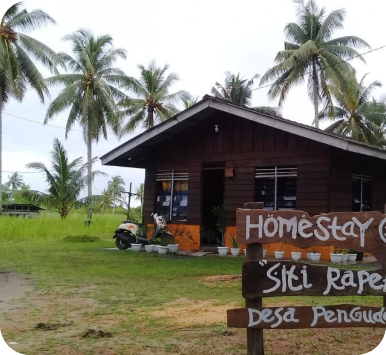 HOMESTAY
"SITI RAPE
DESA PENGUD